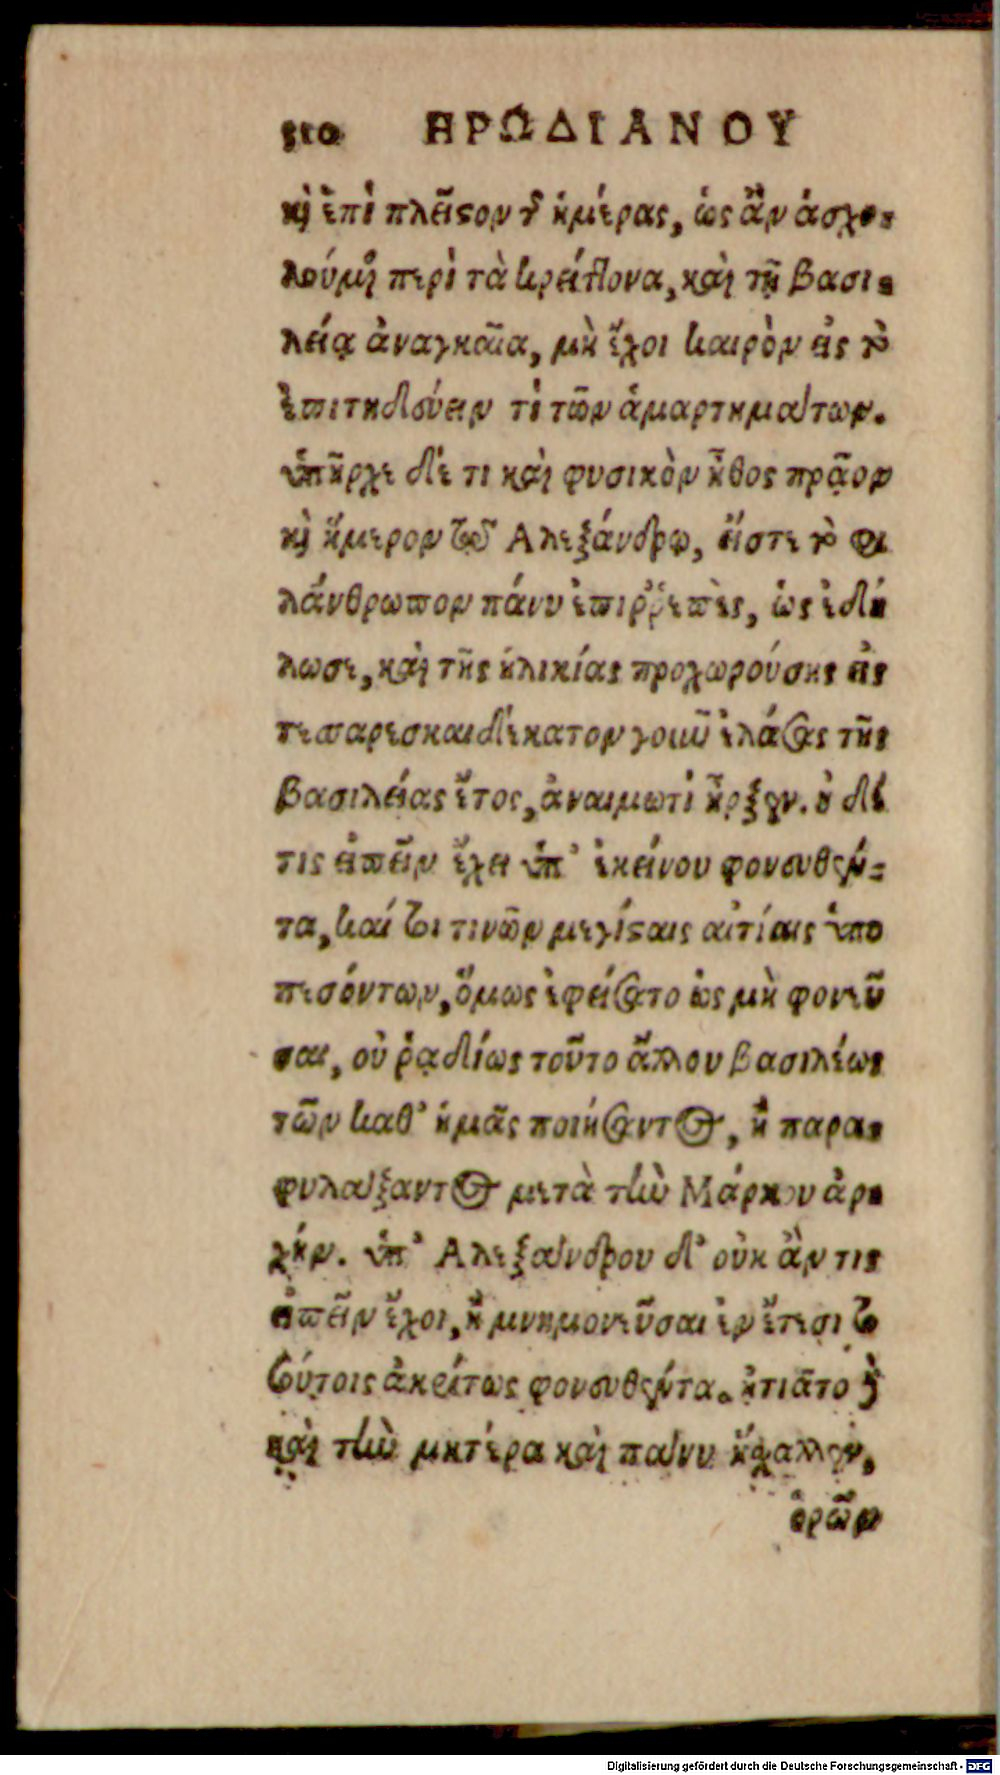 310 ΗΡΩΔΙΑΝΟΥ
καὶ ἐπὶ πλεῖστον τῆς ἡμέρας, ὡς ἂν ἀσχο-
λούμενοι περὶ τὰ κρείττονα, καὶ τῇ βασι-
λείᾳ ἀναγκαῖα, μὴ ἔχοι καιρὸν εἰς τὸ
ἐπιτηδεύειν τὶ τῶν ἁμαρτημάτων.
ὑπῆρχε δέ τι καὶ φυσικὸν ἦθος πρᾷον
καὶ ἥμερον τῷ Ἀλεξάνδρῳ, εἴς τε τὸ φι
λάνθρωπον πάνυ ἐπιῤῥεπὲς, ὡς ἐδή
λωσε, καὶ τῆς ἡλικίας προχωρούσης εἰς
τεσσαρεσκαιδέκατον γοιῶ ἐλάσας τῆς
βασιλείας ἔτος, ἀναιμωτὶ ἦρξεν. οὐδέ
τις εἰπεῖν ἔχει ὑπ' ἐκείνου φονευθέν-
τα, καί τοι τινῶν μεγίσταις αἰτίαις ὑπο
πεσόντων, ὅμως ἐφείσατο ὡς μὴ φονεῦ
σαι, οὐ ῥᾳδίως τοῦτο ἄλλου βασιλέως
τῶν καθ' ἡμᾶς ποιήσαντος, ἢ παρα-
φυλάξαντος μετὰ τὴν Μάρκου ἀρ-
χήν. ὑπ' Ἀλεξάνδρου δ' οὐκ ἄν τις
εἰπεῖν ἔχοι, ἢ μνημονεῦσαι ἐν ἔτεσι το
σούτοις ἀκρίτως φονευθέντα. ᾐτιᾶτο δὲ
καὶ τὴν μητέρα καὶ πάνυ ἤσχαλλεν,
ὁρῶν
Digitalisierung gefördert durch die Deutsche Forschungsgemeinschaft - DFG